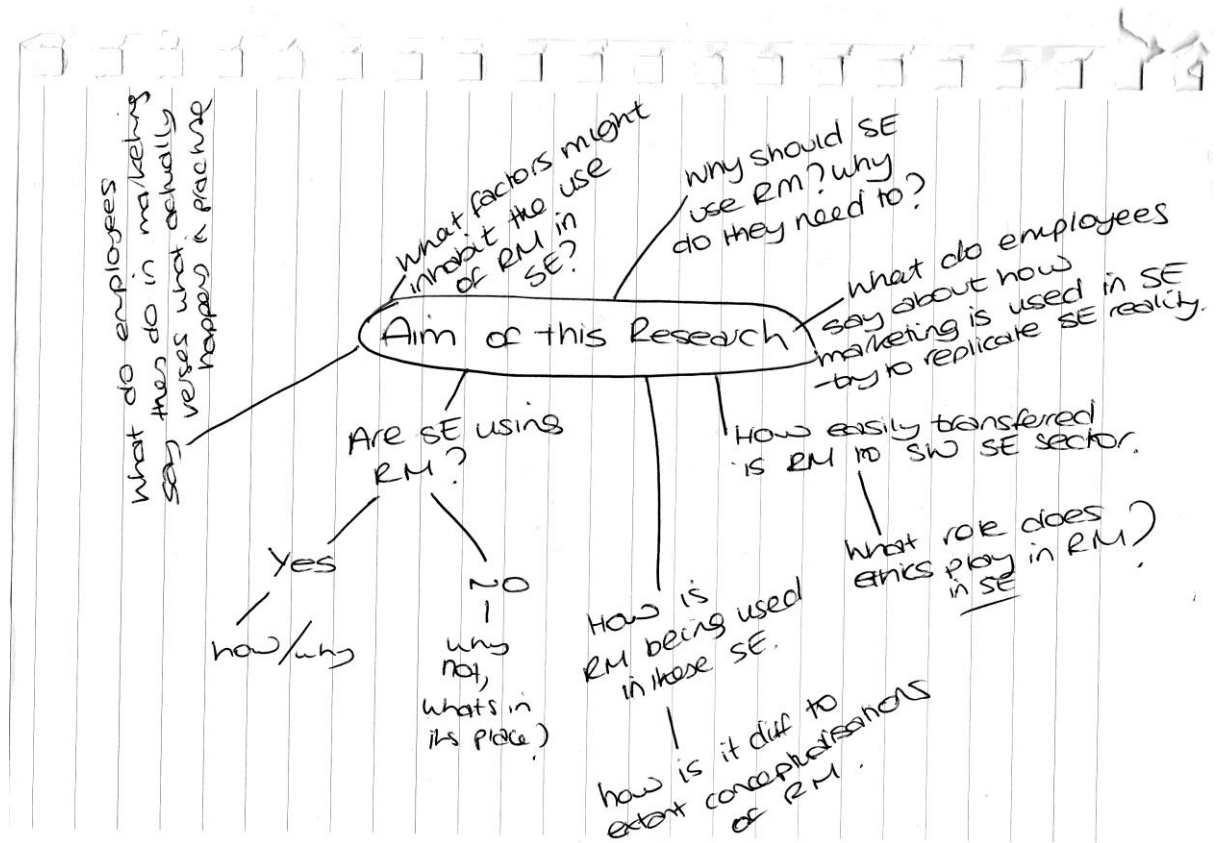 what do employees
say they do in marketing
verses what actually
happens in practise
what factors might
inhibit the use
of RM in
SE?
why should SE
use RM? why
do they need to?
what do employees
say about how
marketing is used in SE
-try to replicate SE reality.
Aim of this Research
Are SE using
RM?
Yes
how/why
NO
why
not,
whats in
its place?
How is
RM being used
in these SE.
how is it diff to
extant conceptualisations
of RM.
How easily transferred
is RM to SW SE sector.
what role does
ethics play in RM?
in SE